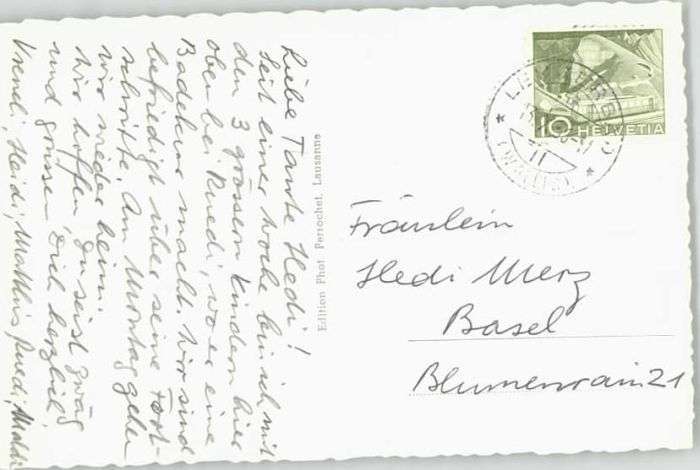 Liebe Tante Hedi!
Seit einer Woche bin ich mit
den 3 grössern Kindern hier
oben bei Ruedi, wo er eine
Badekur macht. Wir sind
befriedigt über seine Fort-
schritte. Am Montag gehen
wir wieder heim.
Wir hoffen, Du seist zwäg
und grüssen Dich herzlich,
Vreneli, Heidi, Matthis, Ruedi,
Edition Phot Perrochet, Lausanne
10 HELVETIA
(WALLIS)
Fräulein
Hedi Merz
Basel
Blumenrain 21